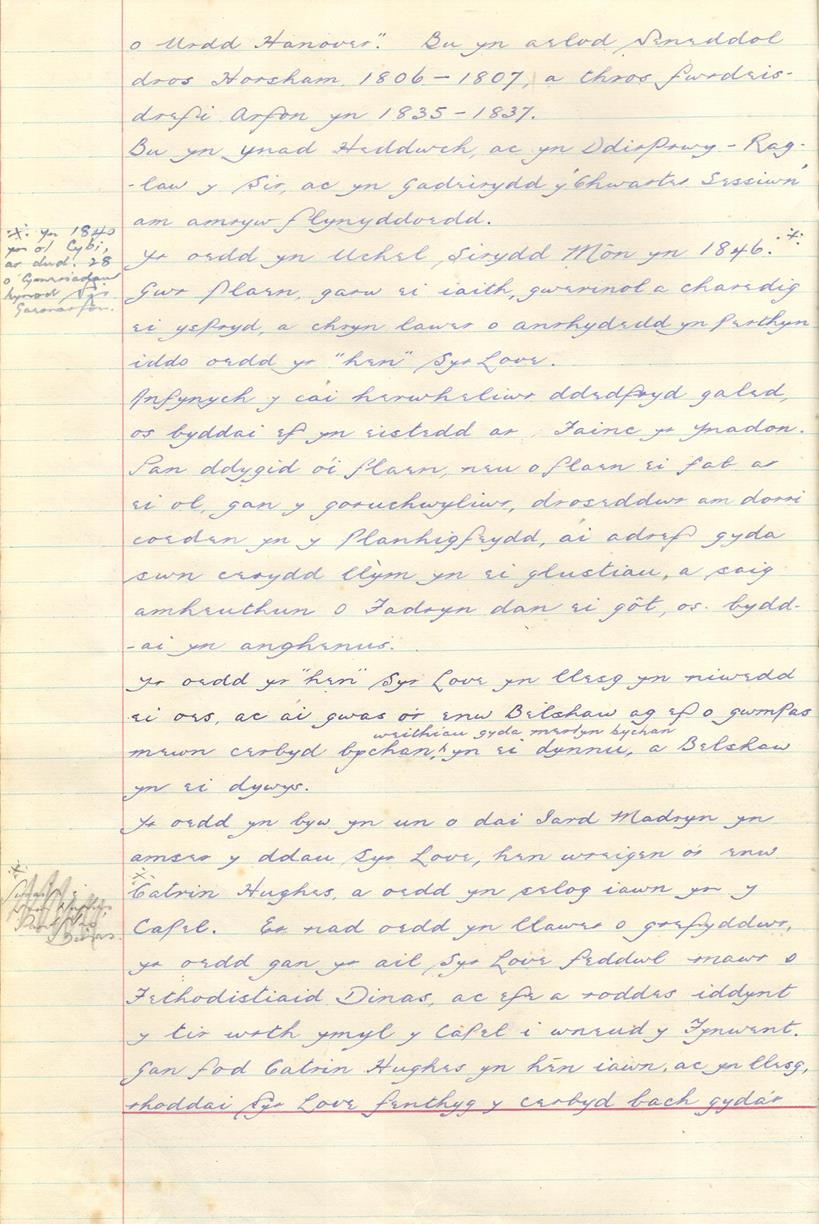 o Urdd Hanover". Bu yn aelod Seneddol
dros Horsham, 1806 – 1807, a thros fwrdeis-
drefi Arfon yn 1835 – 1837.
Bu yn Ynad Heddwch, ac yn Ddirprwy - Rag-
-law y Sir, ac yn Gadeirydd y 'Chwarter Sessiwn'
am amryw flynyddoedd.
Yr oedd yn Uchel Sirydd Môn yn 1846.
yn 1840
yn ol Cybi,
ar dud. 28
o Cymeriadau
hynod Sir
Gaernarfon.
Gwr plaen, garw ei iaith, gwerinol a charedig
ei yspryd, a chryn lawer o anrhydedd yn perthyn
iddo oedd yr "hen" Syr Love.
Anfynych y cai herwheliwr ddedfryd galed,
os byddai ef yn eistedd ar Fainc yr Ynadon.
Pan ddygid o'i flaen, neu o flaen ei fab ar
ei ol, gan y goruchwyliwr, droseddwr am dorri
coeden yn y Planhigfeydd, ai adref gyda
swn cerydd llym yn ei glustiau, a saig
amheuthun o Fadryn dan ei gôt, os bydd-
-ai yn anghenus.
Yr oedd yr "hen" Syr Love yn llesg yn niwedd
ei oes, ac ai gwas o'r enw Belshaw ag ef o gwmpas
weithiau gyda merlyn bychan
mewn cerbyd bychan, yn ei dynnu, a Belshaw
yn ei dywys.
Yr oedd yn byw yn un o dai Iard Madryn yn
amser y ddau Syr Love, hen wreigen o'r enw
Catrin Hughes, a oedd yn selog iawn yn y
Capel. Er nad oedd yn llawer o grefyddwr,
yr oedd gan yr ail Syr Love feddwl mawr o
Fethodistiaid Dinas, ac efe a roddes iddynt
y tir wrth ymyl y Capel i wneud y Fynwent.
Gan fod Catrin Hughes yn hên iawn, ac yn llesg,
rhoddai Syr Love fenthyg y cerbyd bach gyda'r